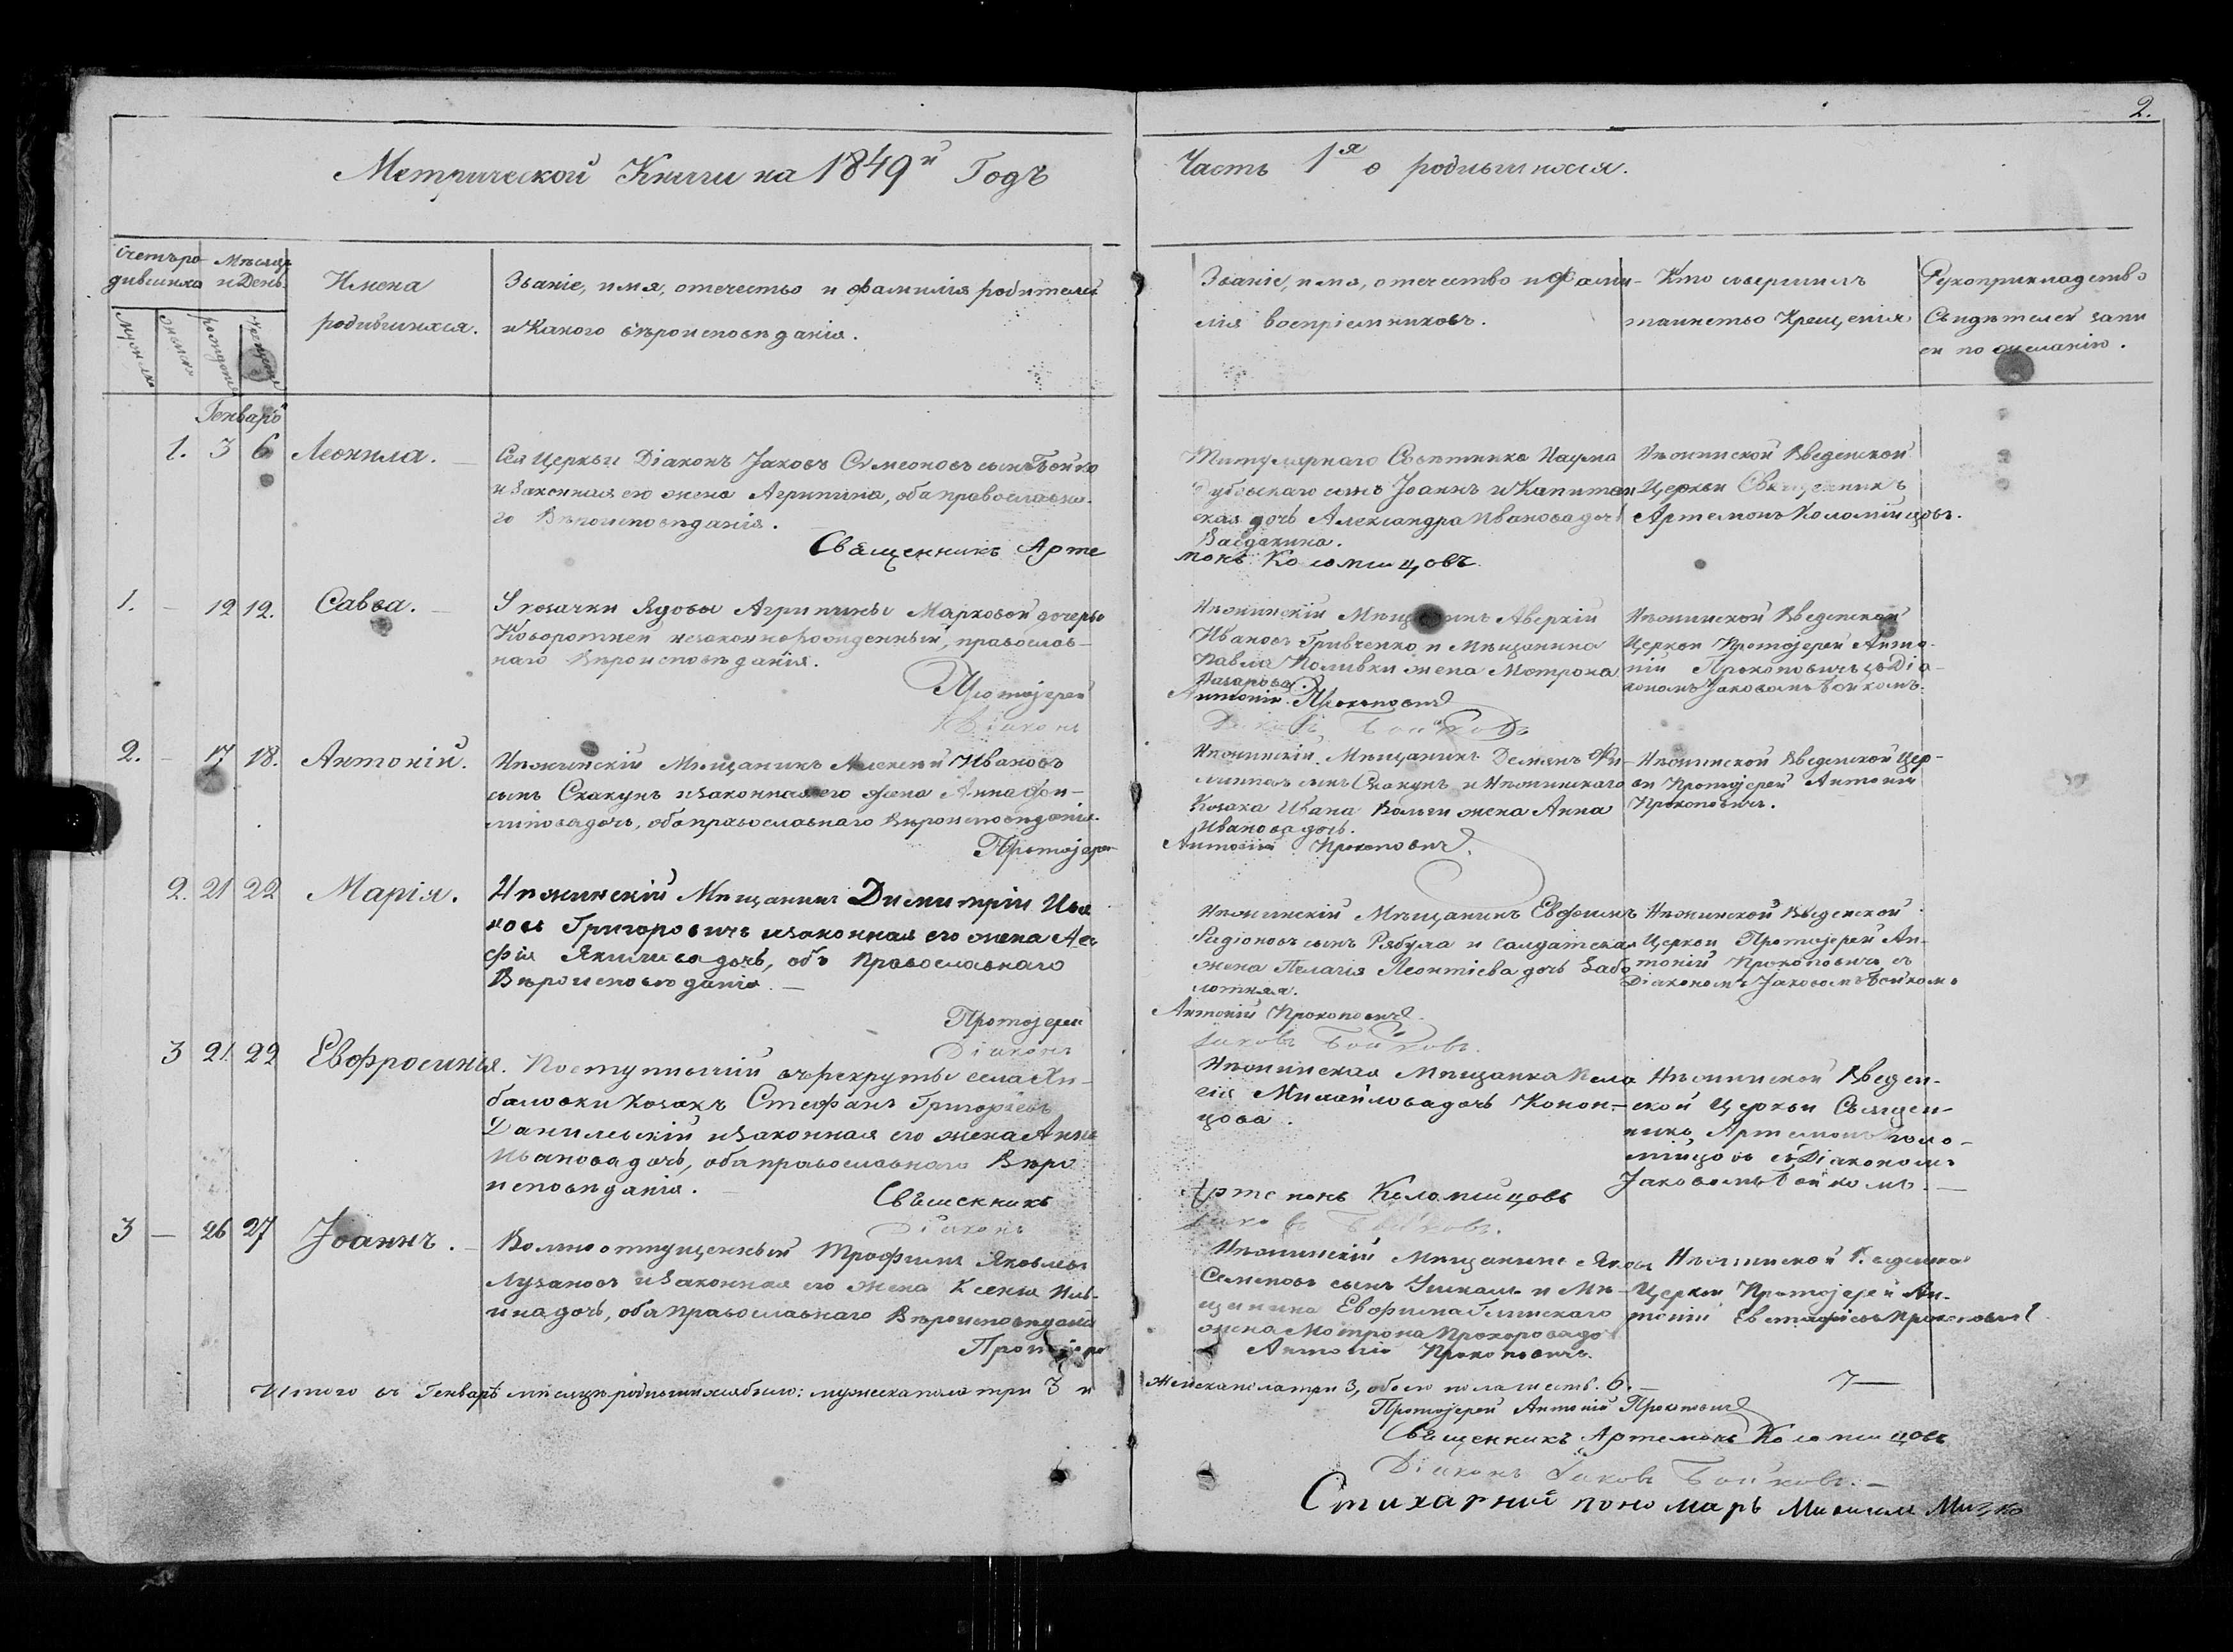 2.
Метрической Книги на 1849й Годъ
Часть 1я о родившихся.
Счетъ ро-
дившихся
Мѣсяцъ
и День.
Имена
родившихся.
Званіе, имя, отечество и фамилія родителей
и Какого вѣроисповѣданія.
Званіе, имя, отечество и Фами-
лія воспріемниковъ.
Кто совершилъ
таинство Крещенія
Рукоприкладство
Свидѣтелей запи
си по желанію.
Генварь
1. 3 6 Леонила.
Сея Церкви Діаконъ Јаковъ Симеоновъ сынъ Бойко
и законная его жена Агрипина, оба православна-
го Вѣроисповѣданія.
Священникъ Арте
Титулярнаго Совѣтника Наума
сынъ Јоаннъ и Капитан
ская дочь Александра Иванова дочь
монъ Коломійцовъ
Нѣжинской Введенской
Церкви Священникъ
Артемонъ Коломійцовъ.
1. - 12 12. Савва.
У козачки вдовы Агрипины Марковой дочери
незаконнорожденный, православ-
наго Вѣроисповѣданія.
Протојерей
Діаконъ
Нѣжинскій Мѣщанинъ Аверкій
Ивановъ Гривченко и Мѣщанина
Павла Поливки жена Мотрона
Назарова.
Антоній Прокоповичъ
Јаковъ Бойковъ
Нѣжинской Введенской
Церкви Протојерей Анто-
ній Прокоповичъ съ Діа-
кономъ Јаковомъ Бойкомъ.
2. - 17 18. Антоній.
Нѣжинскій Мѣщанинъ Алексѣй Ивановъ
сынъ Скакунъ и законная его жена Анна Фи-
липова дочь, оба православнаго Вѣроисповѣданія.
Протојерей
Нѣжинскій Мѣщанинъ Демянъ Фи-
липовъ сынъ Скакунъ и Нѣжинскаго
Козака Ивана жена Анна
Иванова дочь.
Антоній Прокоповичъ.
Нѣжинской Введенской Цер-
кви Протојерей Антоній
Прокоповичъ.
2. 21 22 Марія.
Нѣжинскій Мѣщанинъ Димитрій Ива
новъ Григоровичъ и законная его жена
дочь, объ Православнаго
Вѣроисповѣданія.
Протојерей
Діаконъ
Нѣжинскій Мѣщанинъ Евфимъ
Радіоновъ сынъ Рябуха и салдатская
жена Пелагія Леонтіева дочь Забо
лотняя.
Антоній Прокоповичъ.
Јаковъ Бойковъ.
Нѣжинской Введенской
Церкви Протојерей Ан-
тоній Прокоповичъ съ
Діакономъ Јаковомъ Бойкомъ
3 21. 22 Евфросинія.
Поступившій въ рекруты села
козакъ Стефанъ Григоріевъ
Данилевскій и законная его жена Анна
Иванова дочь, оба православнаго Вѣро
исповѣданія.
Священникъ
Діаконъ
Нѣжинская Мѣщанка Пела
гія Михайлова дочь Конон-
цова.
Артемонъ Коломійцовъ
Јаковъ Бойковъ.
Нѣжинской Введен-
ской Церкви Священ-
никъ Артемонъ Коло-
мійцовъ съ Діакономъ
Јаковомъ Бойкомъ.
3 - 26 27 Јоаннъ.
Вольноотпущенный Трофимъ Яковлевъ
Лузановъ и законная его жена Ксенія
дочь, оба православнаго Вѣроисповѣданія
Протојерей
Нѣжинскій Мѣщанинъ Яковъ
Семеновъ сынъ и Мѣ-
щанина Евфима
жена Мотрона Прохорова дочь
Антоній Прокоповичъ.
Нѣжинской Введенской
Церкви Протојерей Ан-
тоній Евстафіевъ Прокоповичъ
Итого въ Генварѣ мѣсяцѣ родившихся было: мужеска пола три 3 и
Женска пола три 3, обоего пола шесть 6.
Протојерей Антоній Прокоповичъ
Священникъ Артемонъ Коломійцовъ
Діаконъ Јаковъ Бойковъ.
Стихарный пономарь Мизко